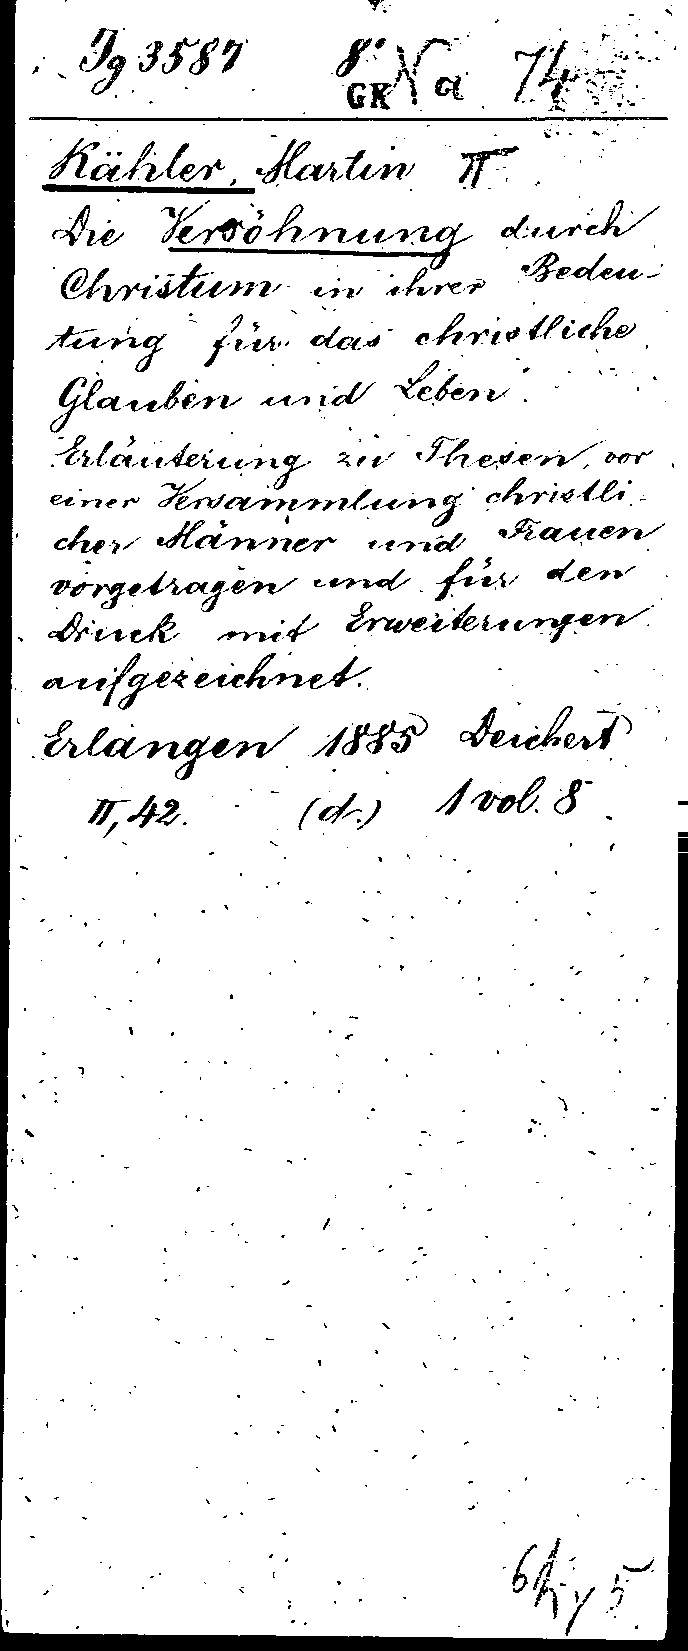 Ig 3587 8° Na 74
GK
Kähler, Martin II
Die Versöhnung durch
Christum in ihrer Bedeu-
tung für das christliche
Glauben und Leben.
Erläuterung zu Thesen, vor
einer Versammlung christli-
cher Männer und Frauen
vorgetragen und für den
Druck mit Erweiterungen
aufgezeichnet.
Erlangen 1885 Deichert
II, 42. (d.) 1 vol. 8